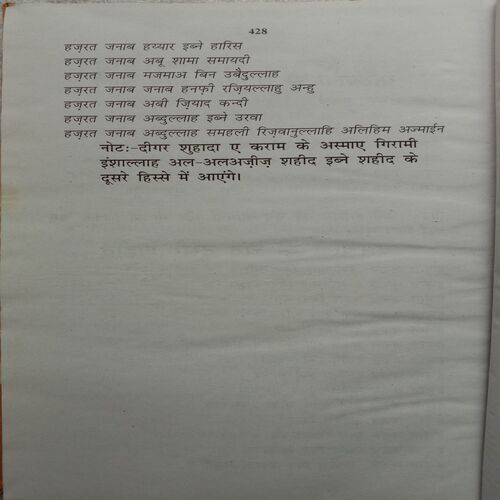 428
हज़रत जनाब हय्यार इब्ने हारिस
हज़रत जनाब अबू शामा समायदी
हज़रत जनाब मजमाअ बिन उबैदुल्लाह
हज़रत जनाब जनाब हनफ़ी रज़ियल्लाहु अन्हु
हज़रत जनाब अबी ज़ियाद कन्दी
हज़रत जनाब अब्दुल्लाह इब्ने उरवा
हज़रत जनाब अब्दुल्लाह समहली रिज़वानुल्लाहि अलिहिम अज्माईन
नोटः-दीगर शुहादा ए कराम के अस्माए गिरामी
इंशाल्लाह अल-अलअज़ीज़ शहीद इब्ने शहीद के
दूसरे हिस्से में आएंगे।